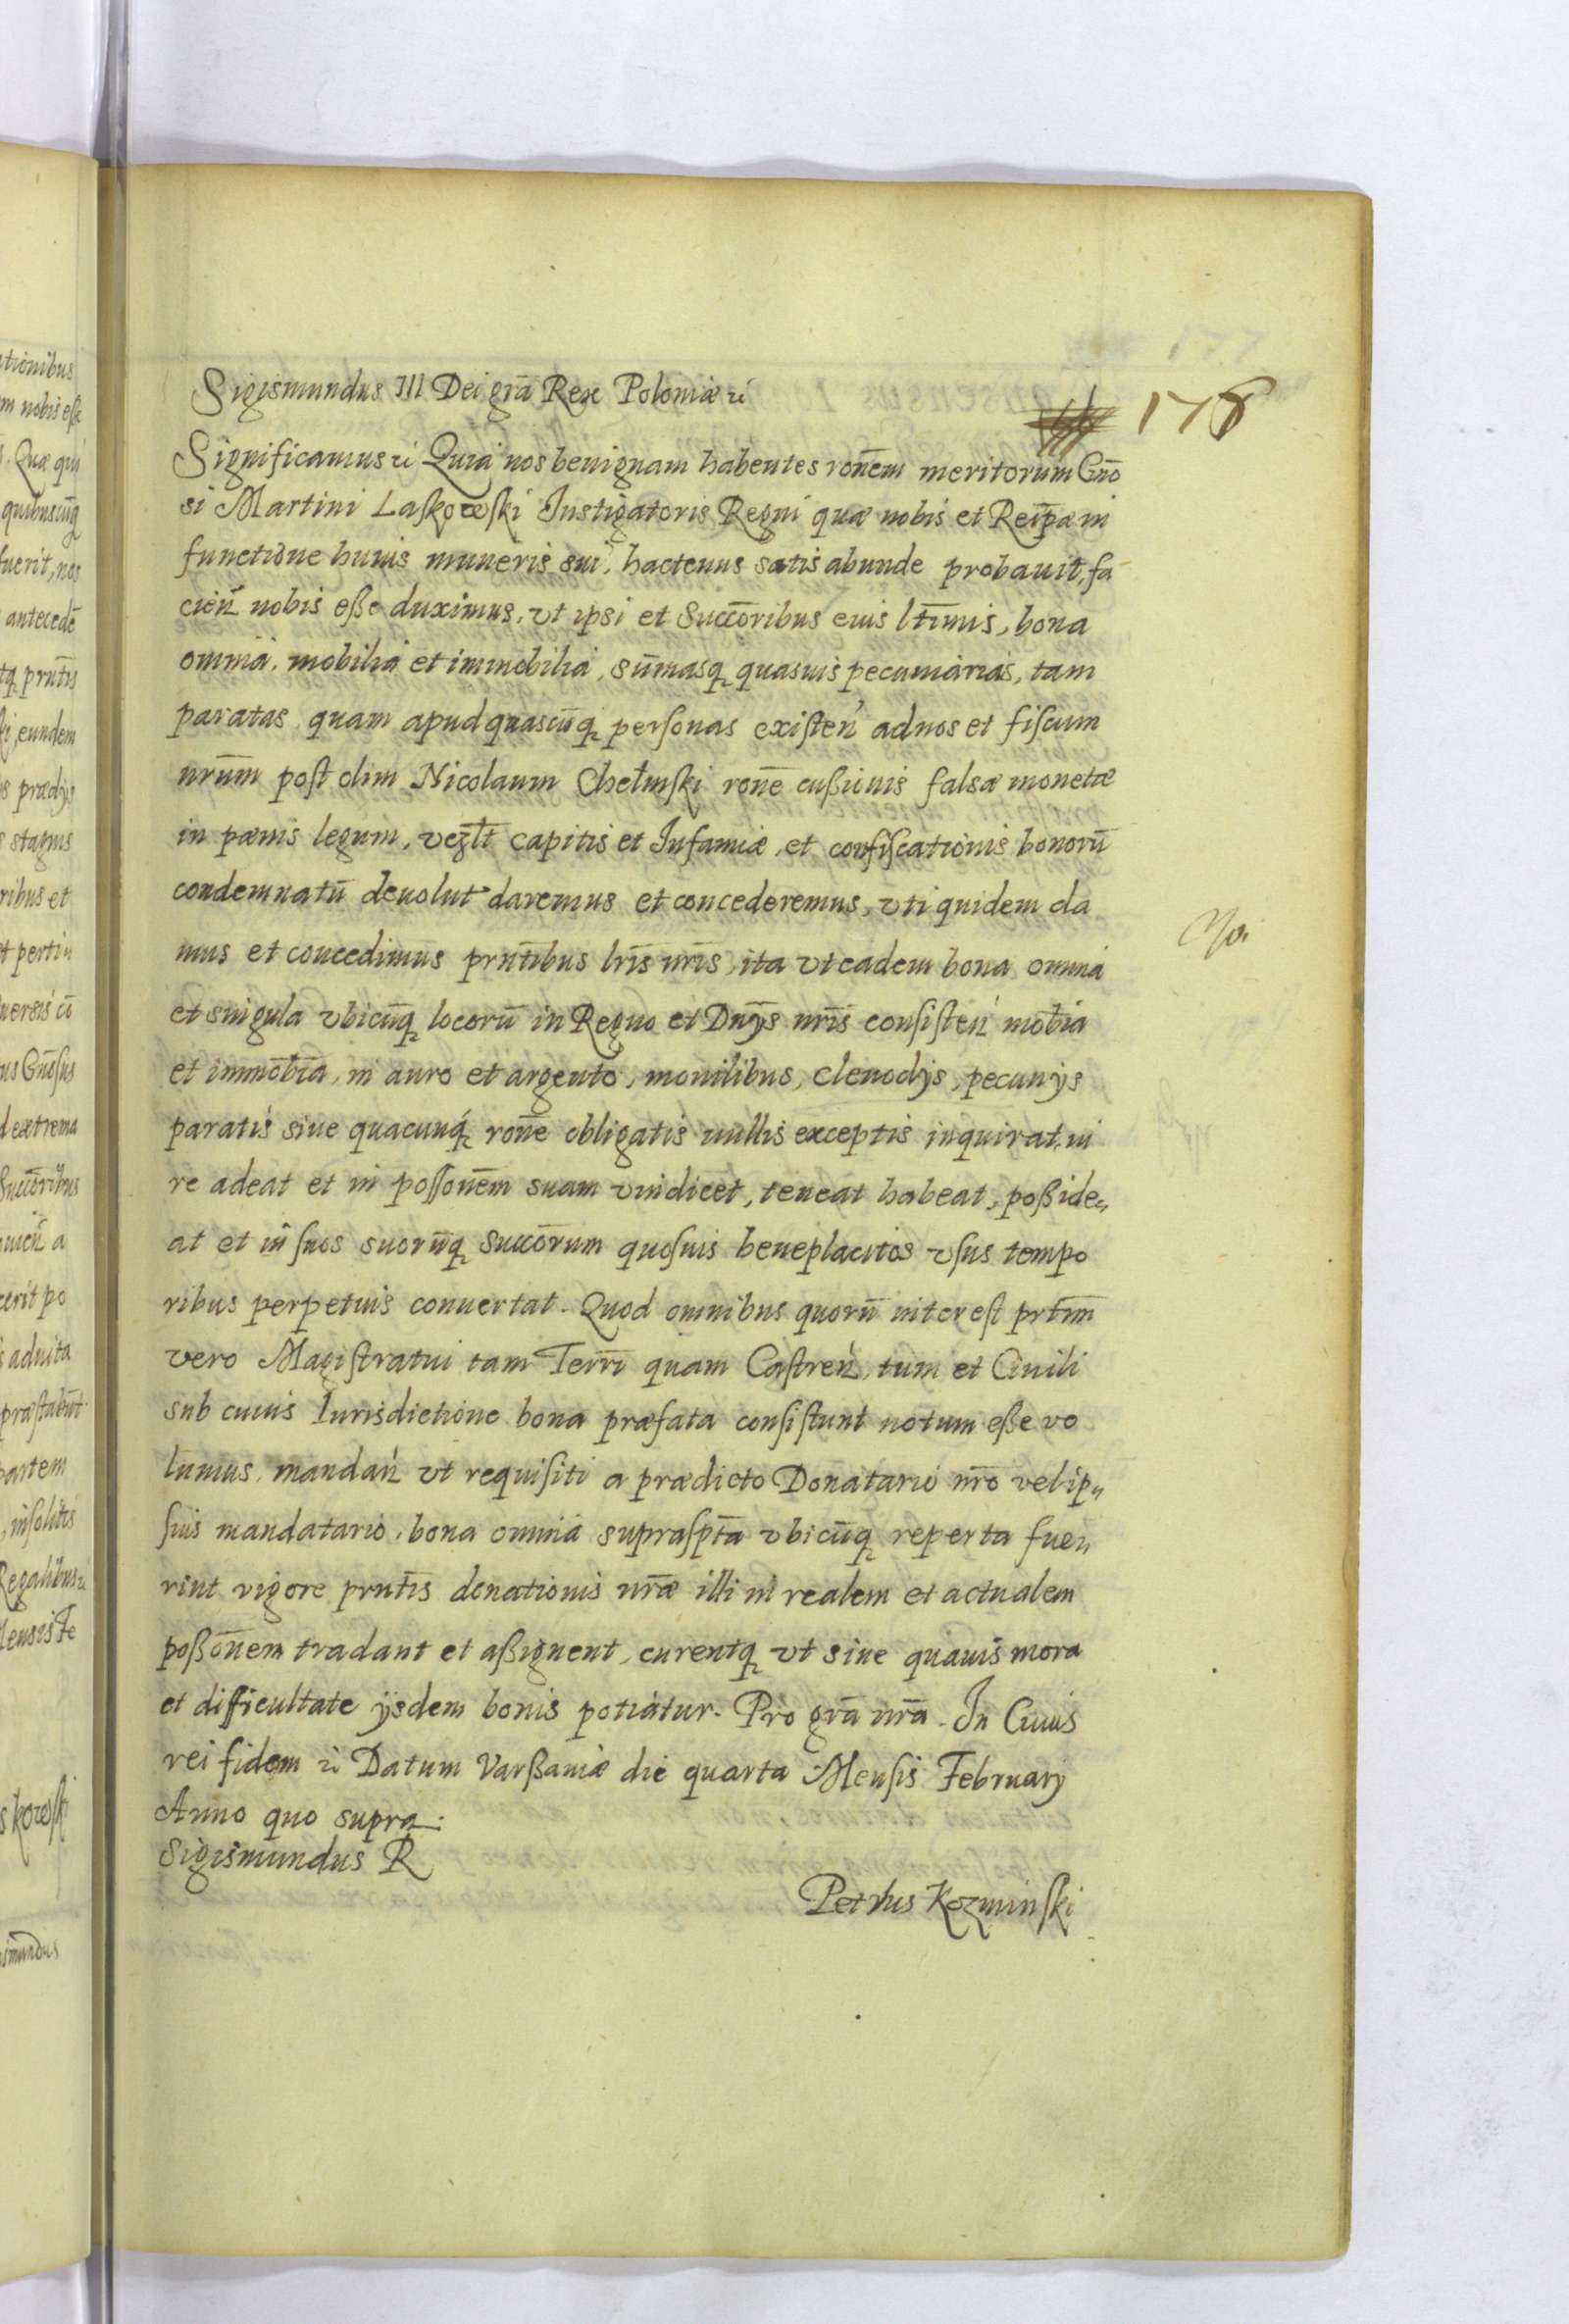 Sigismundus III Dei grā Rex Poloniæ ⁊c̄
178
Significamus ⁊c̄ Quia nos benignam habentes rōnem meritorum Gn̄o
si Martini Laskowski Instigatoris Regni quæ nobis et Reip̄æ in
functione huius muneris sui, hactenus satis abunde probauit, fa
cień nobis eße duximus, vt ipsi et Succōribus eius ltīmis, bona
omnia, mobilia et immobilia, sūmasq quasuis pecuniarias, tam
paratas, quam apud quascūq personas existeń ad nos et fiscum
nrūm post olim Nicolaum Chełmski rōne cußionis falsæ monetæ
in pænis legum, vezlt capitis et Infamiæ, et confiscationis bonorū
condemnatū deuolut daremus et concederemus, vti quidem da
mus et concedimus prntībus lrīs nrīs, ita vt eadem bona omnia
et singula vbicūq locorū in Regno et Dnÿs nrīs consisteń mob̄ia
et immob̄ia, in auro et argento, monilibus, clenodÿs, pecunÿs
paratis siue quacunq́ rōne obligatis nullis exceptis inquirat, iu
re adeat et in possōnem suam vindicet, teneat habeat, poßide„
at et in suos suorūq Succōrum quosuis beneplacitos vsus tempo
ribus perpetuis conuertat. Quod omnibus quorū interest prtīm
vero Magistratui tam Terrī quam Castreń, tum et Ciuili
sub cuius Iurisdictione bona præfata consistunt notum eße vo
lumus, mandań vt requisiti a prædicto Donatario nr̄o vel ip„
sius mandatario, bona omnia suprasptā vbicūq reperta fue„
rint vigore prntīs donationis nrǣ illi in realem et actualem
poßōnem tradant et aßignent, curentq vt sine quauis mora
et difficultate ÿsdem bonis potiatur. Pro grā nrā. In Cuius
rei fidem ⁊c̄ Datum Varßauiæ die quarta Mensis Februarÿ
Anno quo supra.
Sigismundus R
Petrus Kozminski